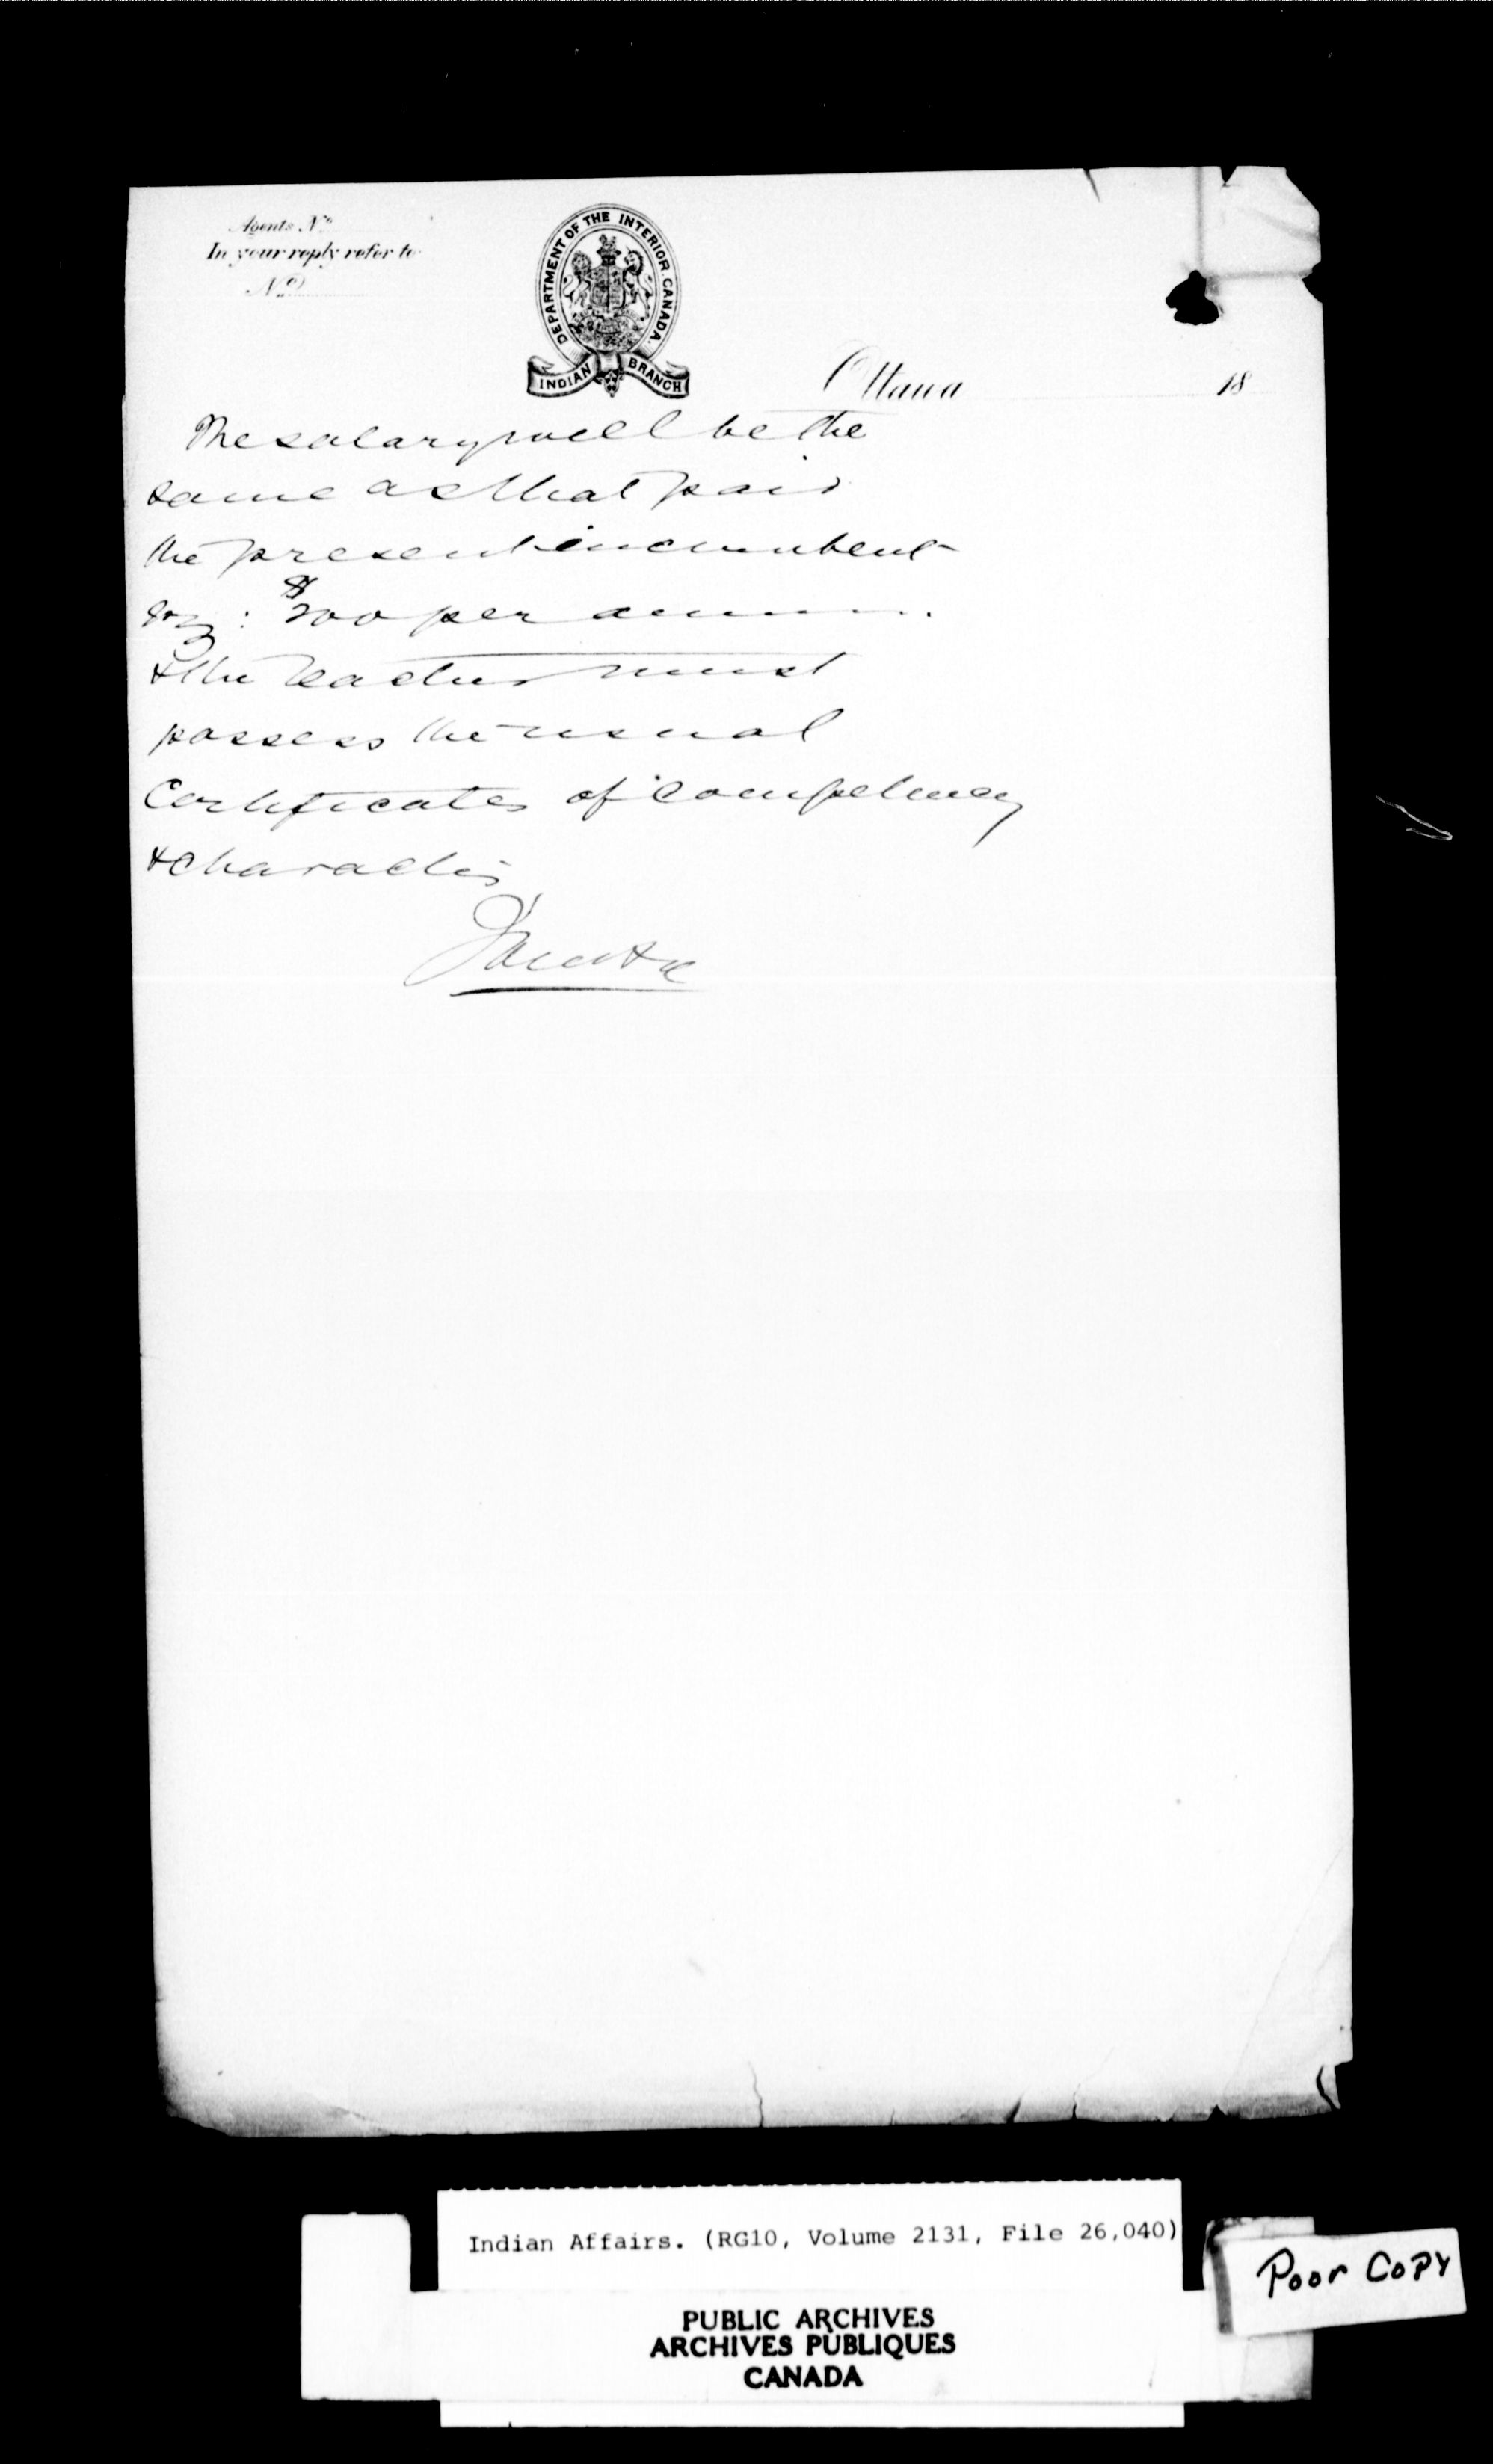 Agents No
In your reply refer to
No
DEPARTMENT OF THE INTERIOR. CANADA.
INDIAN BRANCH
Ottawa 18
The salary will be the
same as that paid
the present incumbent
viz: $200 per annum.
& the teacher must
possess the usual
Certificates of competency
& character
Indian Affairs. (RG10, Volume 2131, File 26,040)
Poor Copy
PUBLIC ARCHIVES
ARCHIVES PUBLIQUES
CANADA